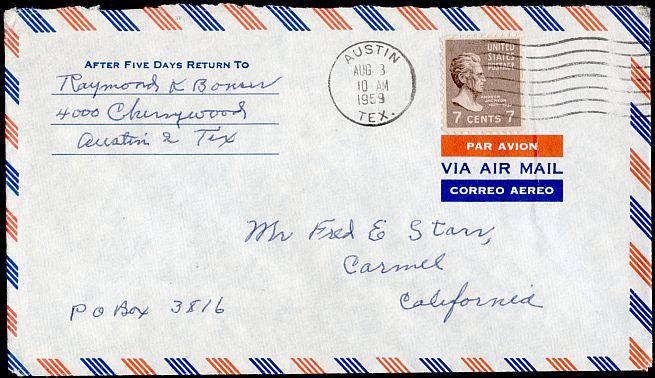 AFTER FIVE DAYS RETURN TO
Raymond K Bonser
4000 Cherrywood
Austin 2 Tex
AUSTIN
AUG 3
10 AM
1959
TEX.
UNITED
STATES
POSTAGE
ANDREW
JACKSON
1829-1837
7 CENTS 7
PAR AVION
VIA AIR MAIL
CORREO AEREO
Mr Fred E Starr,
Carmel
California
P O Box 3816